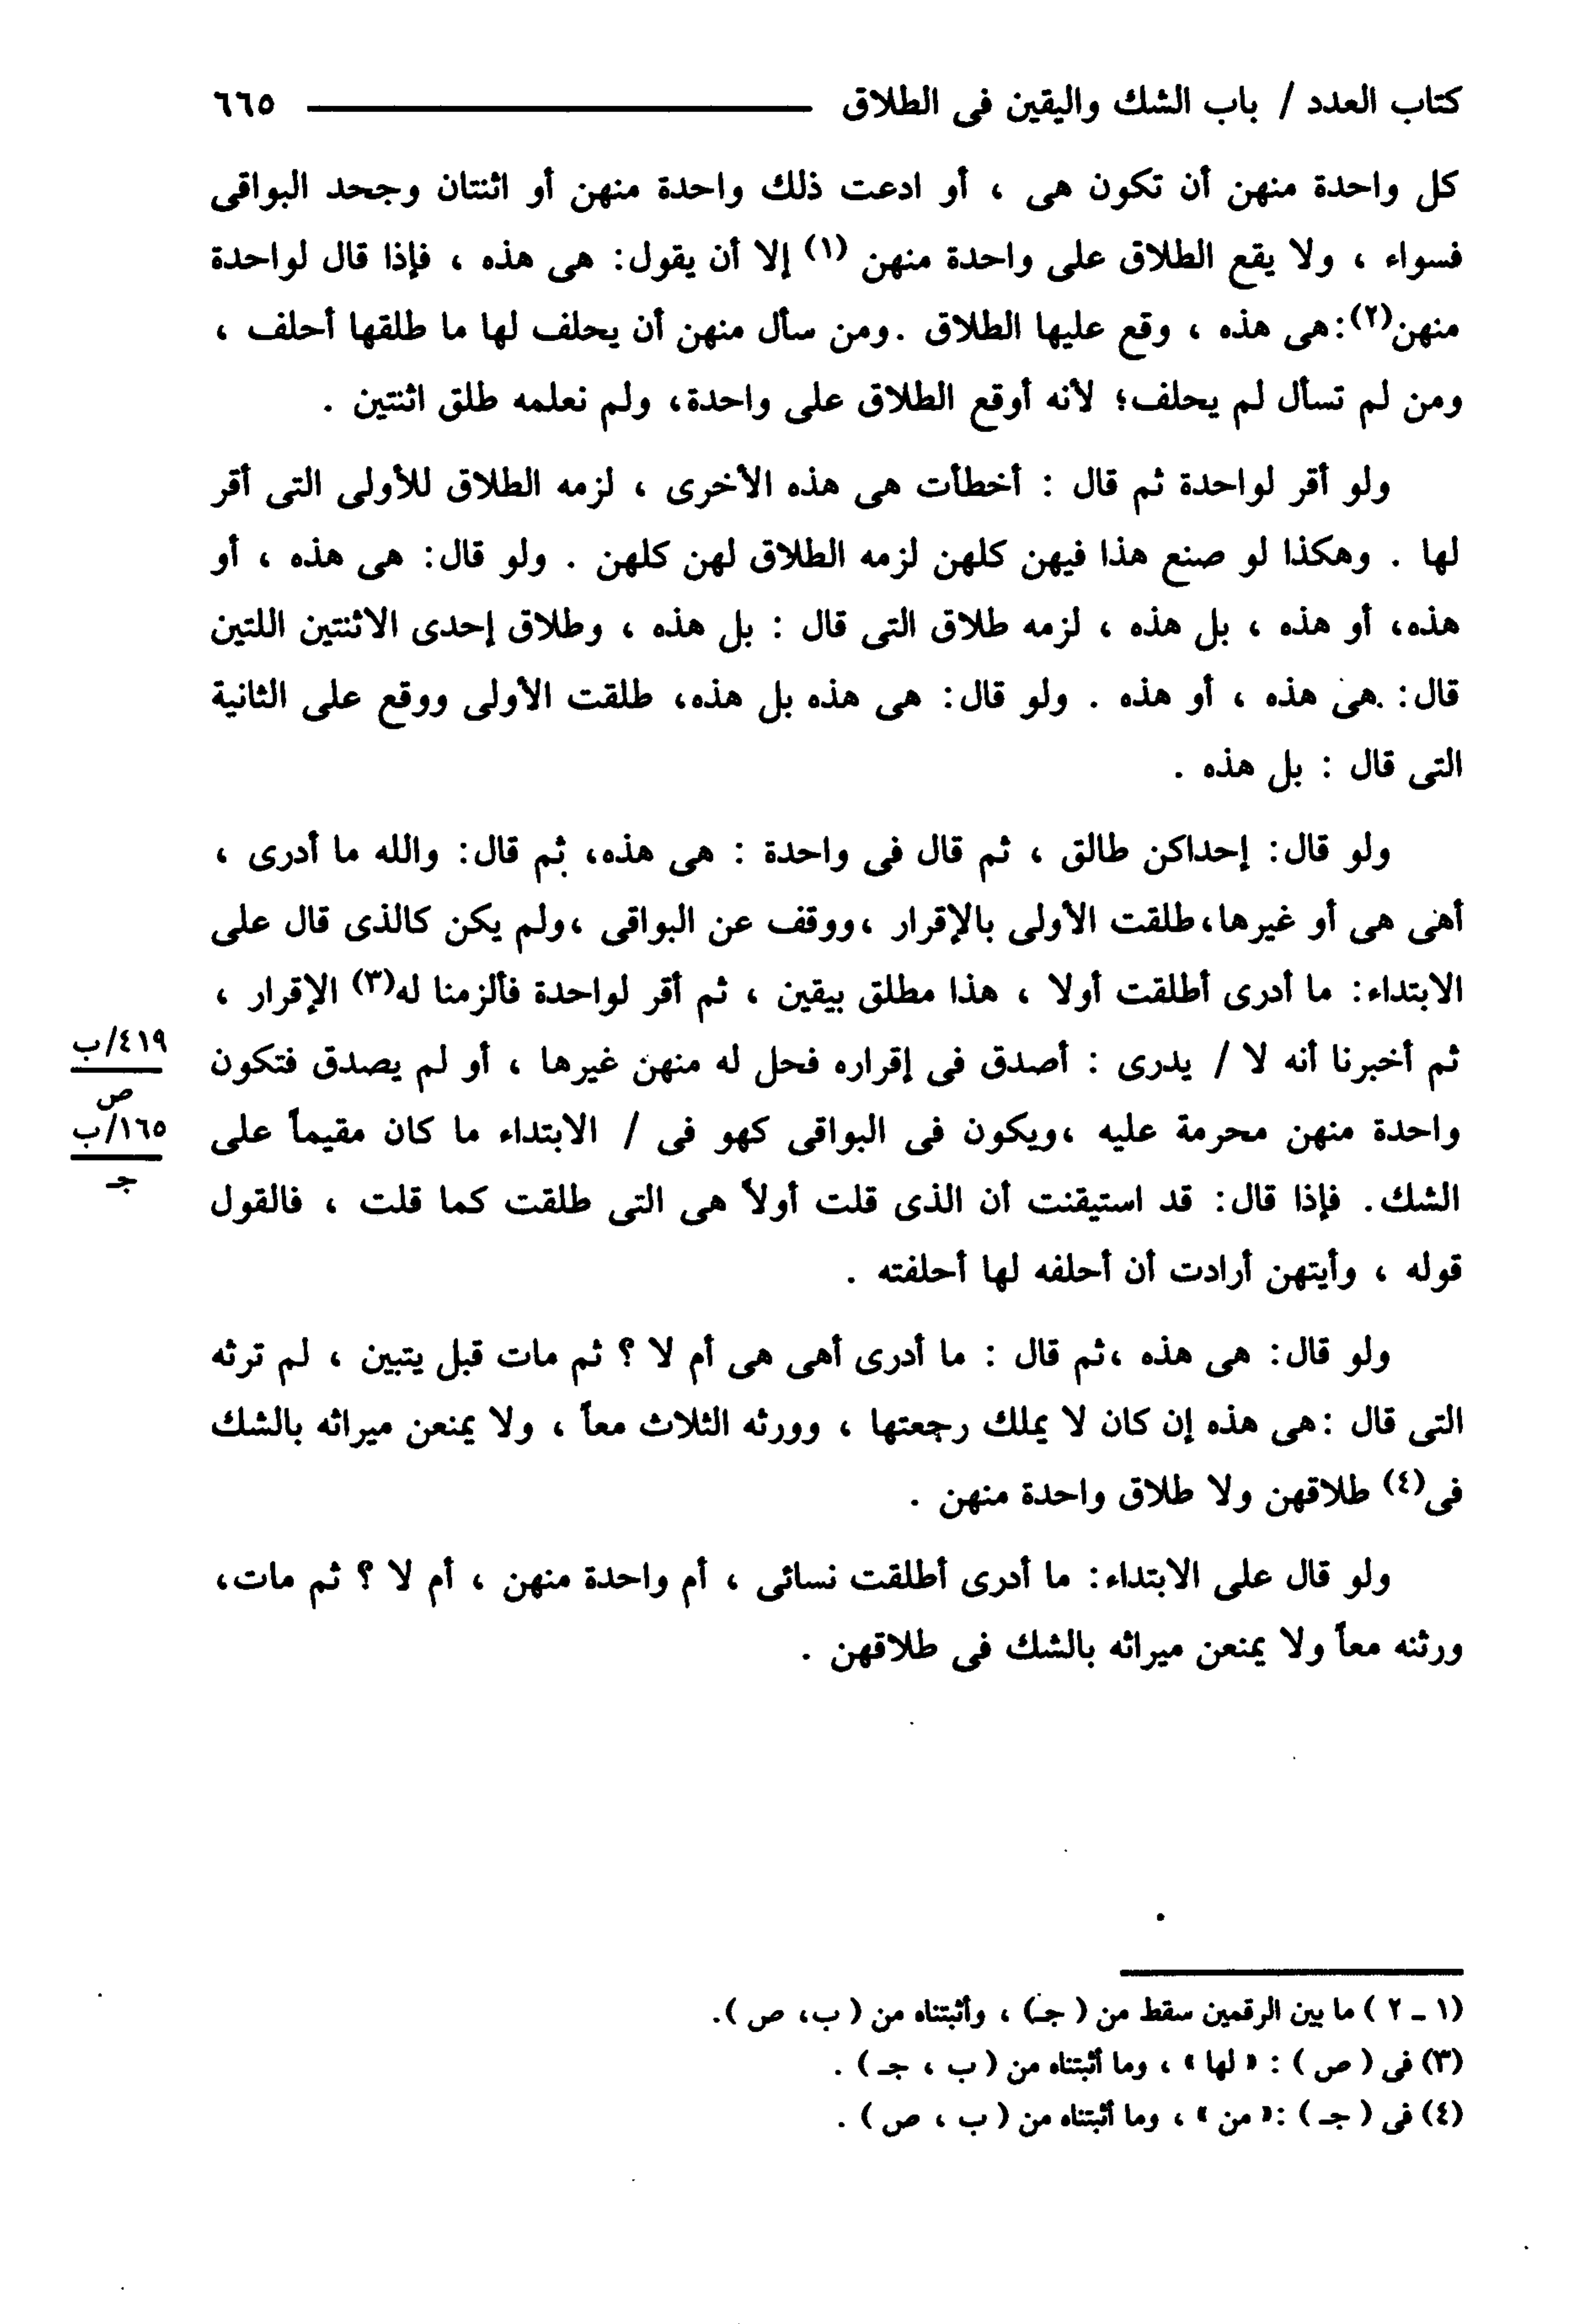 كتاب العدد / باب الشك واليقين فى الطلاق ٦٦٥
كل واحدة منهن أن تكون هى ، أو ادعت ذلك واحدة منهن أو اثنتان وجحد البواقى
فسواء ، ولا يقع الطلاق على واحدة منهن (١) إلا أن يقول: هى هذه ، فإذا قال لواحدة
منهن(٢): هى هذه ، وقع عليها الطلاق . ومن سأل منهن أن يحلف لها ما طلقها أحلف ،
ومن لم تسأل لم يحلف؛ لأنه أوقع الطلاق على واحدة، ولم نعلمه طلق اثنتين .
ولو أقر لواحدة ثم قال : أخطأت هى هذه الأخرى ، لزمه الطلاق للأولى التى أقر
لها . وهكذا لو صنع هذا فيهن كلهن لزمه الطلاق لهن كلهن . ولو قال: هى هذه ، أو
هذه، أو هذه ، بل هذه ، لزمه طلاق التى قال : بل هذه ، وطلاق إحدى الاثنتين اللتين
قال: هى هذه ، أو هذه . ولو قال: هى هذه بل هذه، طلقت الأولى ووقع على الثانية
التى قال : بل هذه .
ولو قال: إحداكن طالق ، ثم قال فى واحدة : هى هذه، ثم قال: والله ما أدرى ،
أهى هى أو غيرها، طلقت الأولى بالإقرار ، ووقف عن البواقى ، ولم يكن كالذى قال على
الابتداء: ما أدرى أطلقت أولا ، هذا مطلق بيقين ، ثم أقر لواحدة فألزمنا له(٣) الإقرار ،
ثم أخبرنا أنه لا / يدرى : أصدق فى إقراره فحل له منهن غيرها ، أو لم يصدق فتكون
٤١٩/ب
ص
واحدة منهن محرمة عليه ، ويكون فى البواقى كهو فى / الابتداء ما كان مقيماً على
١٦٥/ب
جـ
الشك. فإذا قال: قد استيقنت أن الذى قلت أولاً هى التى طلقت كما قلت ، فالقول
قوله ، وأيتهن أرادت أن أحلفه لها أحلفته .
ولو قال: هى هذه ، ثم قال : ما أدرى أهى هى أم لا ؟ ثم مات قبل يتبين ، لم ترثه
التى قال : هى هذه إن كان لا يملك رجعتها ، وورثه الثلاث معاً ، ولا يمنعن ميراثه بالشك
فى(٤) طلاقهن ولا طلاق واحدة منهن .
ولو قال على الابتداء: ما أدرى أطلقت نسائى ، أم واحدة منهن ، أم لا ؟ ثم مات،
ورثنه معاً ولا يمنعن ميراثه بالشك فى طلاقهن .
(١ - ٢ ) ما بين الرقمين سقط من ( جـ) ، وأثبتناه من ( ب، ص ).
(٣) فى ( ص ) : « لها » ، وما أثبتناه من ( ب ، جـ ) .
(٤) فى ( جـ ) : « من » ، وما أثبتناه من ( ب ، ص ) .